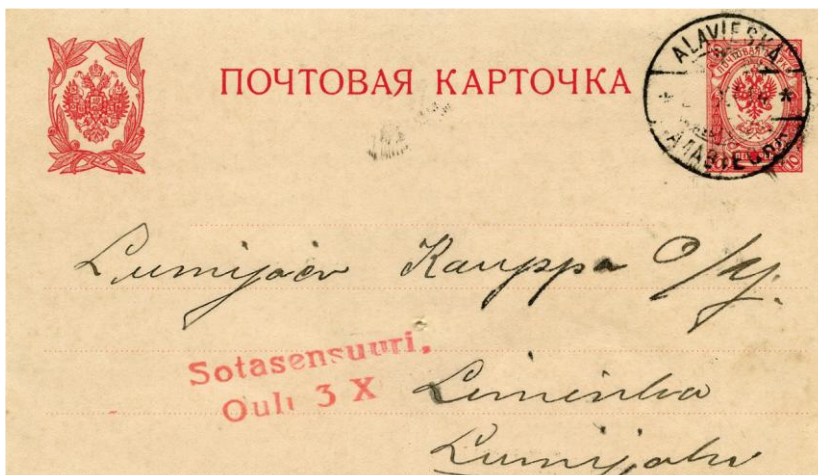 ПОЧТОВАЯ КАРТОЧКА
ALAVIESKA
10
Lumijoen Kauppa O/Y.
Sotasensuuri.
Oulu 3 X
Liminka
Lumijoki